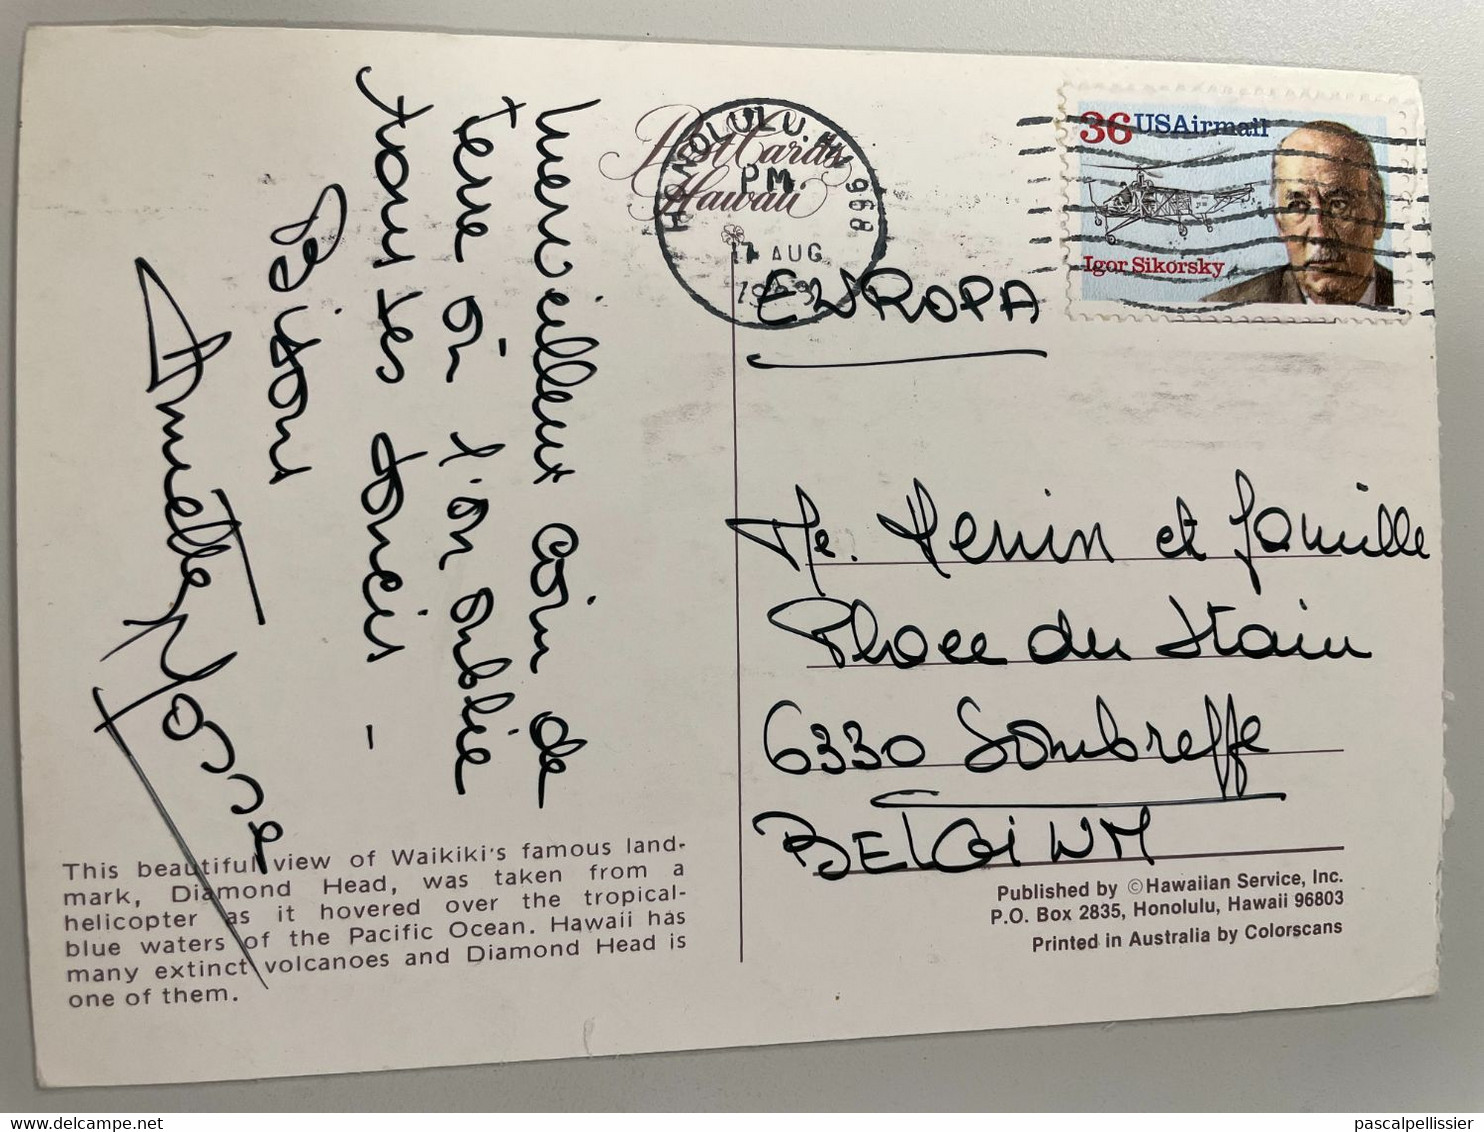 Merveilleux coin de
terre où l'on oublie
tous les soucis -
Bisous
Annette Josse
Post Cards
Hawaii
HONOLULU. HI 968
PM.
AUG
36 USAirmail
Igor Sikorsky
EUROPA
Me. Henin et famille
Place du Stain
6330 Sombreffe
BELGIUM
This beautiful view of Waikiki's famous land-
mark, Diamond Head, was taken from a
helicopter as it hovered over the tropical-
blue waters of the Pacific Ocean. Hawaii has
many extinct volcanoes and Diamond Head is
one of them.
Published by ©Hawaiian Service, Inc.
P.O. Box 2835, Honolulu, Hawaii 96803
Printed in Australia by Colorscans
pascalpellissier